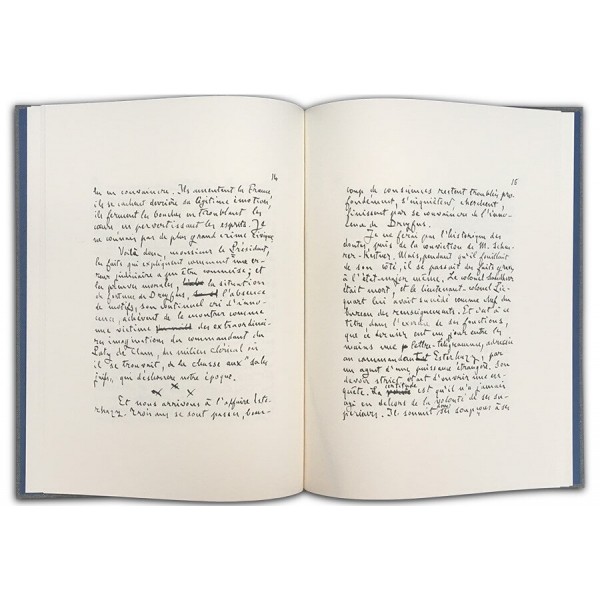 14
en convaincre. Ils ameutent la France,
ils se cachent derrière sa légitime émotion,
ils ferment les bouches en troublant les
cœurs, en pervertissant les esprits. Je
ne connais pas de plus grand crime civique.
Voilà donc, monsieur le Président,
les faits qui expliquent comment une er-
reur judiciaire a pu être commise ; et
les preuves morales, la situation
de fortune de Dreyfus, l'absence
de motifs, son continuel cri d'inno-
cence, achèvent de le montrer comme
une victime des extraordinai-
res imaginations du commandant du
Paty de Clam, du milieu clérical où
il se trouvait, de la chasse aux "sales
juifs", qui déshonore notre époque.
x x x
Et nous arrivons à l'affaire Ester-
hazy. Trois ans se sont passés, beau-
15
coup de consciences restent troublées pro-
fondément, s'inquiètent, cherchent,
finissent par se convaincre de l'inno-
cence de Dreyfus.
Je ne ferai pas l'historique des
doutes, puis de la conviction de M. Scheu-
rer-Kestner. Mais, pendant qu'il fouillait
de son côté, il se passait des faits graves
à l'état-major même. Le colonel Sandherr
était mort, et le lieutenant-colonel Pic-
quart lui avait succédé comme chef du
bureau des renseignements. Et c'est à ce
titre, dans l'exercice de ses fonctions,
que ce dernier eut un jour entre les
mains une lettre-télégramme, adressée
au commandant Esterhazy, par
un agent d'une puissance étrangère. Son
devoir strict était d'ouvrir une en-
quête. La certitude est qu'il n'a jamais
agi en dehors de la volonté de ses su-
périeurs. Il soumit donc ses soupçons à ses